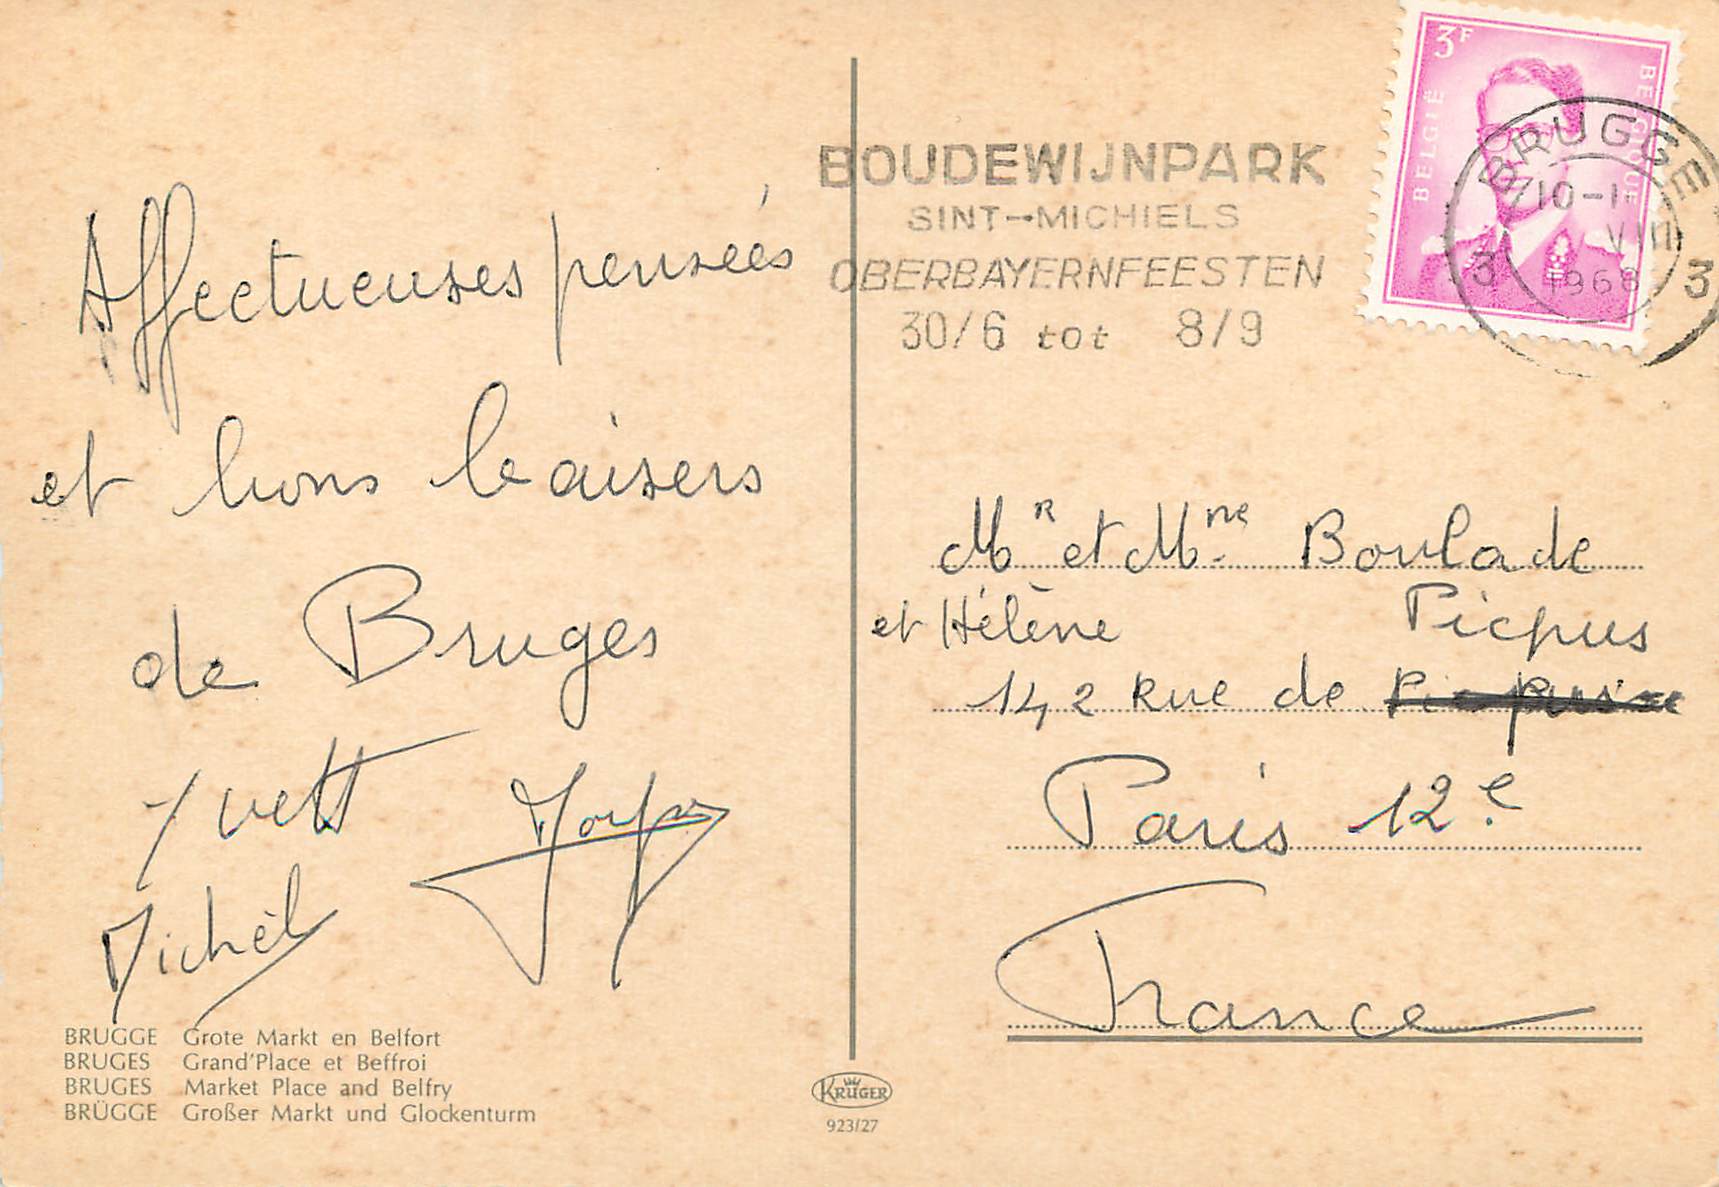 Affectueuses pensées
et bons baisers
de Bruges
Yvett
Michèl
BRUGGE Grote Markt en Belfort
BRUGES Grand'Place et Beffroi
BRUGES Market Place and Belfry
BRÜGGE Großer Markt und Glockenturm
KRÜGER
923/27
BOUDEWIJNPARK
SINT-MICHIELS
OBERBAYERNFEESTEN
30/6 tot 8/9
3F
BELGIË
BELGIQUE
BRUGGE
10-1
VIII
1968
3 3
Mr et Mme Boulade
et Hélène Picpus
142 Rue de
Paris 12e
France